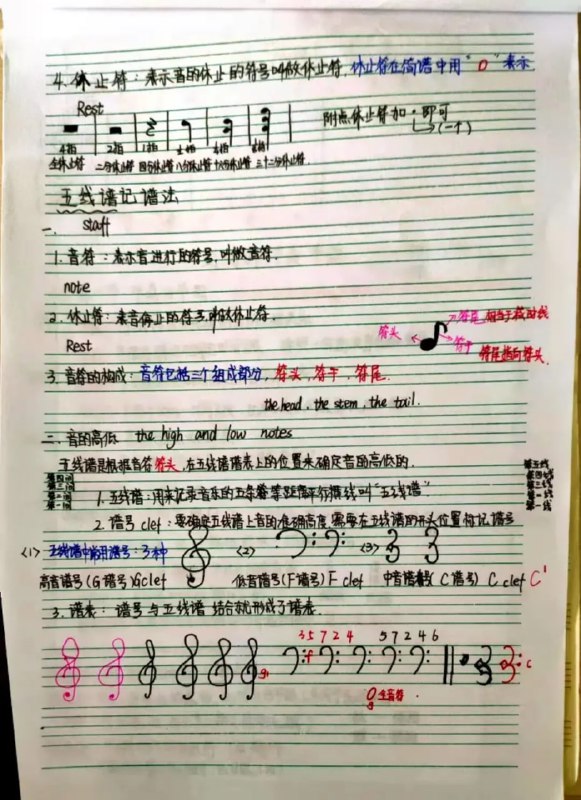 4. 休止符：表示音的休止的符号叫做休止符，休止符在简谱中用“0”表示
Rest
附点休止符加·即可
(一个)
4拍 2拍 1拍
全休止符 二分休止符 四分休止符 八分休止符 十六分休止符 三十二分休止符.
五线谱记谱法
一、 staff
1. 音符：表示音进行的符号，叫做音符.
note
2. 休止符：表音停止的符号，叫做休止符.
Rest
符头 符尾 相当于减时线
符干 符尾指向符头.
3. 音符的构成：音符包括三个组成部分，符头，符干，符尾.
the head, the stem, the tail.
二、音的高低 the high and low notes
五线谱是根据音符符头，在五线谱谱表上的位置来确定音的高低的.
第四间
第三间
第二间
第一间
第五线
第四线
第三线
第二线
第一线
1. 五线谱：用来记录音乐的五条等距离平行横线叫“五线谱”
2. 谱号 clef：要确定五线谱上音的准确高度，需要在五线谱的开头位置标记谱号
<1> 五线谱中常用谱号：3种 <2> <3>
高音谱号(G谱号)G clef 低音谱号(F谱号) F clef 中音谱号(C谱号) C clef C¹
3. 谱表：谱号与五线谱结合就形成了谱表.
3 5 7 2 4 5 7 2 4 6
g¹ f c
全音符.